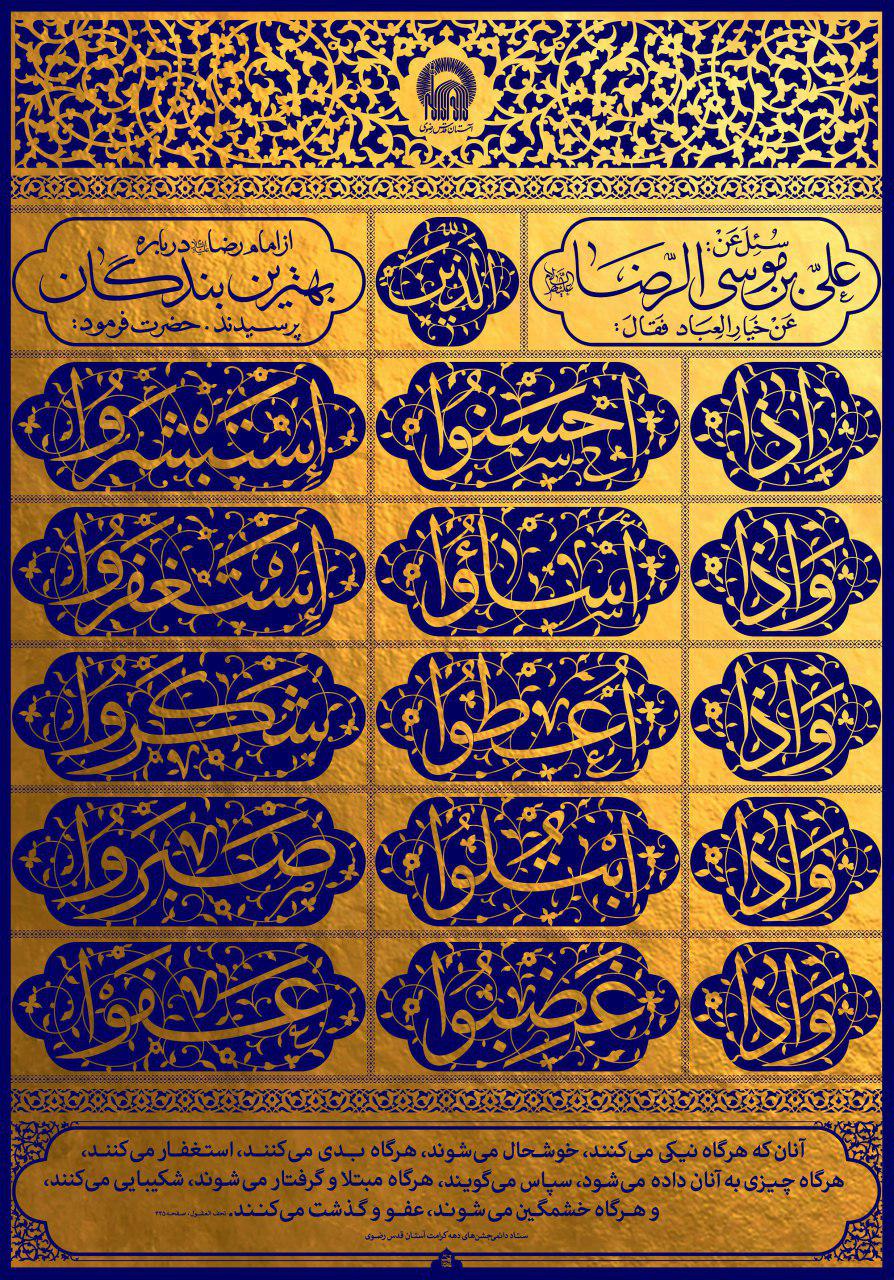 آستان قدس رضوی
سُئِلَ عَنْ:
عَلیِّ بنِ مُوسَی الرِّضَا علیه السلام
عَنْ خِيَارِ العِبَادِ فَقَالَ:
الَّذينَ
از امام رضا علیه السلام درباره
بهترین بندگان
پرسیدند. حضرت فرمود:
إِذَا أَحسَنُوا إِستَبْشَرُوا
وَإِذَا أَسَاؤُا إِسْتَغفَرُوا
وَإِذَا أُعْطُوا شَكَرُوا
وَإِذَا ابْتُلُوا صَبَرُوا
وَإِذَا غَضِبُوا عَفَوْا
آنان که هرگاه نیکی می‌کنند، خوشحال می‌شوند، هرگاه بدی می‌کنند، استغفار می‌کنند،
هرگاه چیزی به آنان داده می‌شود، سپاس می‌گویند، هرگاه مبتلا و گرفتار می‌شوند، شکیبایی می‌کنند،
و هرگاه خشمگین می‌شوند، عفو و گذشت می‌کنند. تحف العقول، صفحه ۴۴۵
ستاد دائمی جشن‌های دهه کرامت آستان قدس رضوی